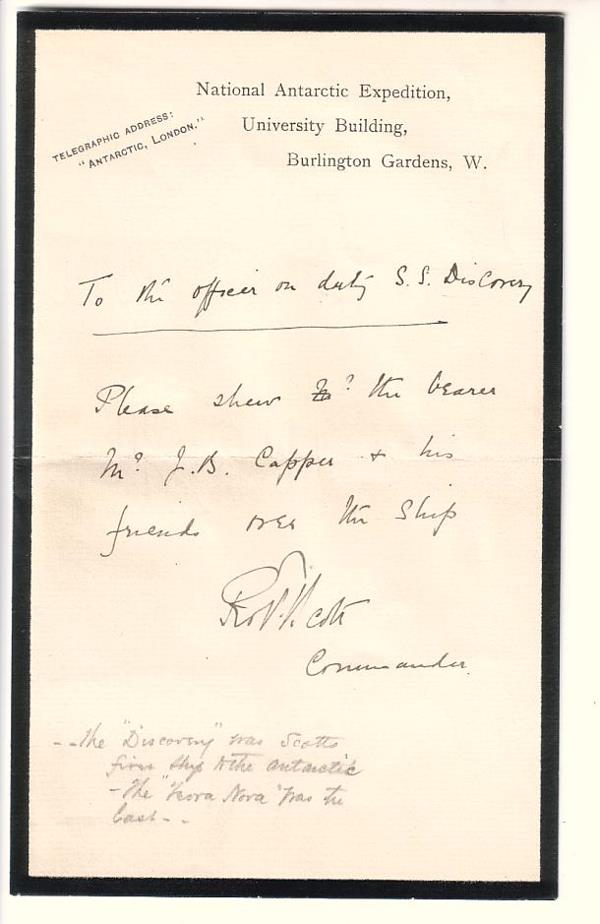 National Antarctic Expedition,
University Building,
Burlington Gardens, W.
TELEGRAPHIC ADDRESS:
"ANTARCTIC, LONDON."
To the officer on duty S.S. Discovery
Please shew the bearer
Mr J.B. Capper & his
friends over the ship
RobtScott
Commander
--The "Discovery" was Scotts
first ship to the antarctic
- The "Terra Nova" was the
last - -